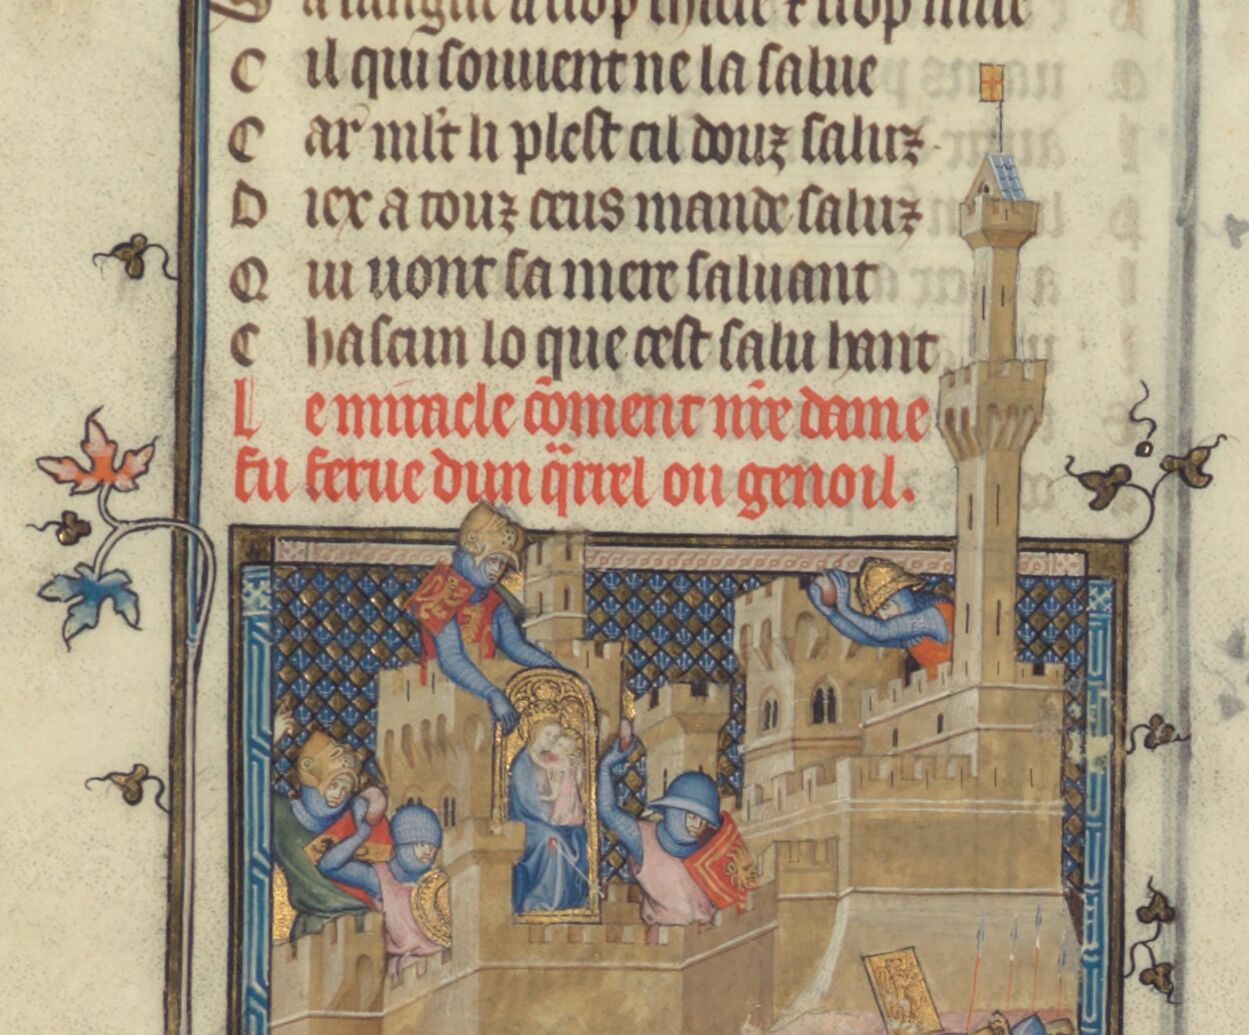 a langue a trop
C il qui souuent ne la salue
C ar mlt li plest cil douz saluz
D iex a touz ceus mande saluz
Q ui uont sa mere saluant
C hascun lo que cest salu hant
L e miracle cōment nr̄e dame
fu ferue dun qrrel ou genoil.